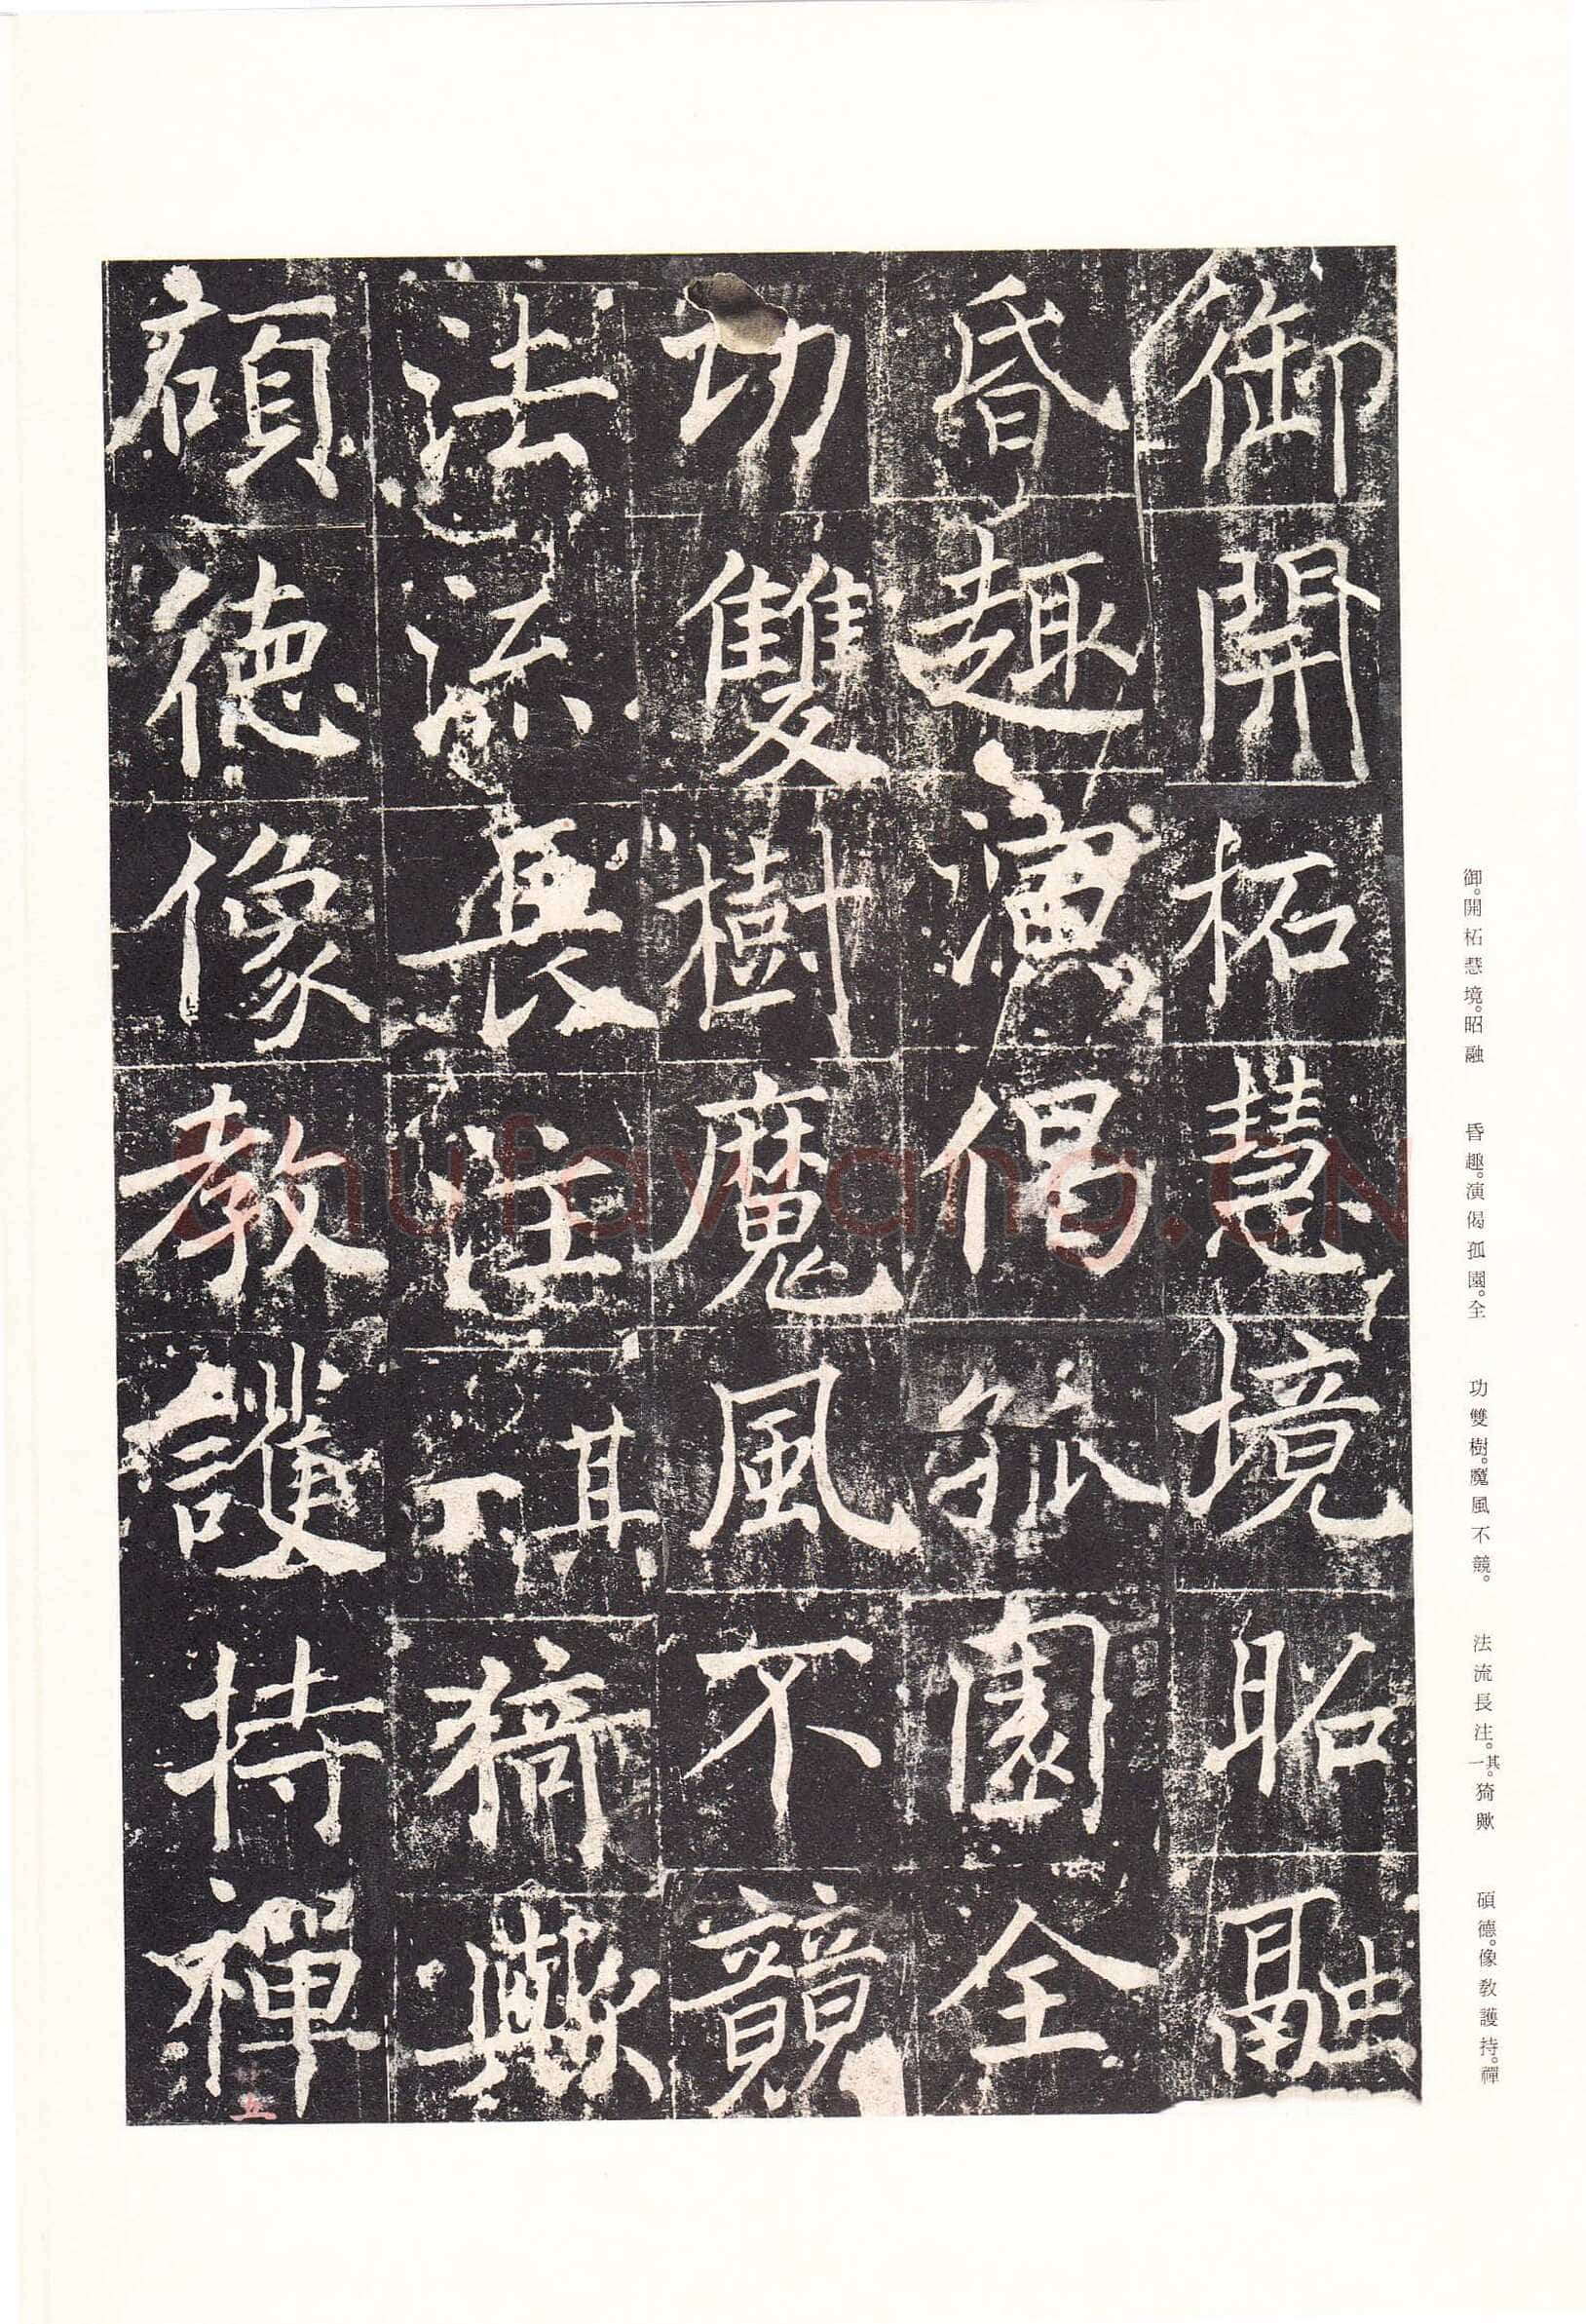 御開柘慧境昭融
昏趣演偈孤園全
功雙樹魔風不競
法流長注其一猗歟
碩德像教護持禪
御。開柘慧境。昭融
昏趣。演偈孤園。全
功雙樹。魔風不競。
法流長注。其一。猗歟
碩德。像教護持。禪
五
Shufawang.CN